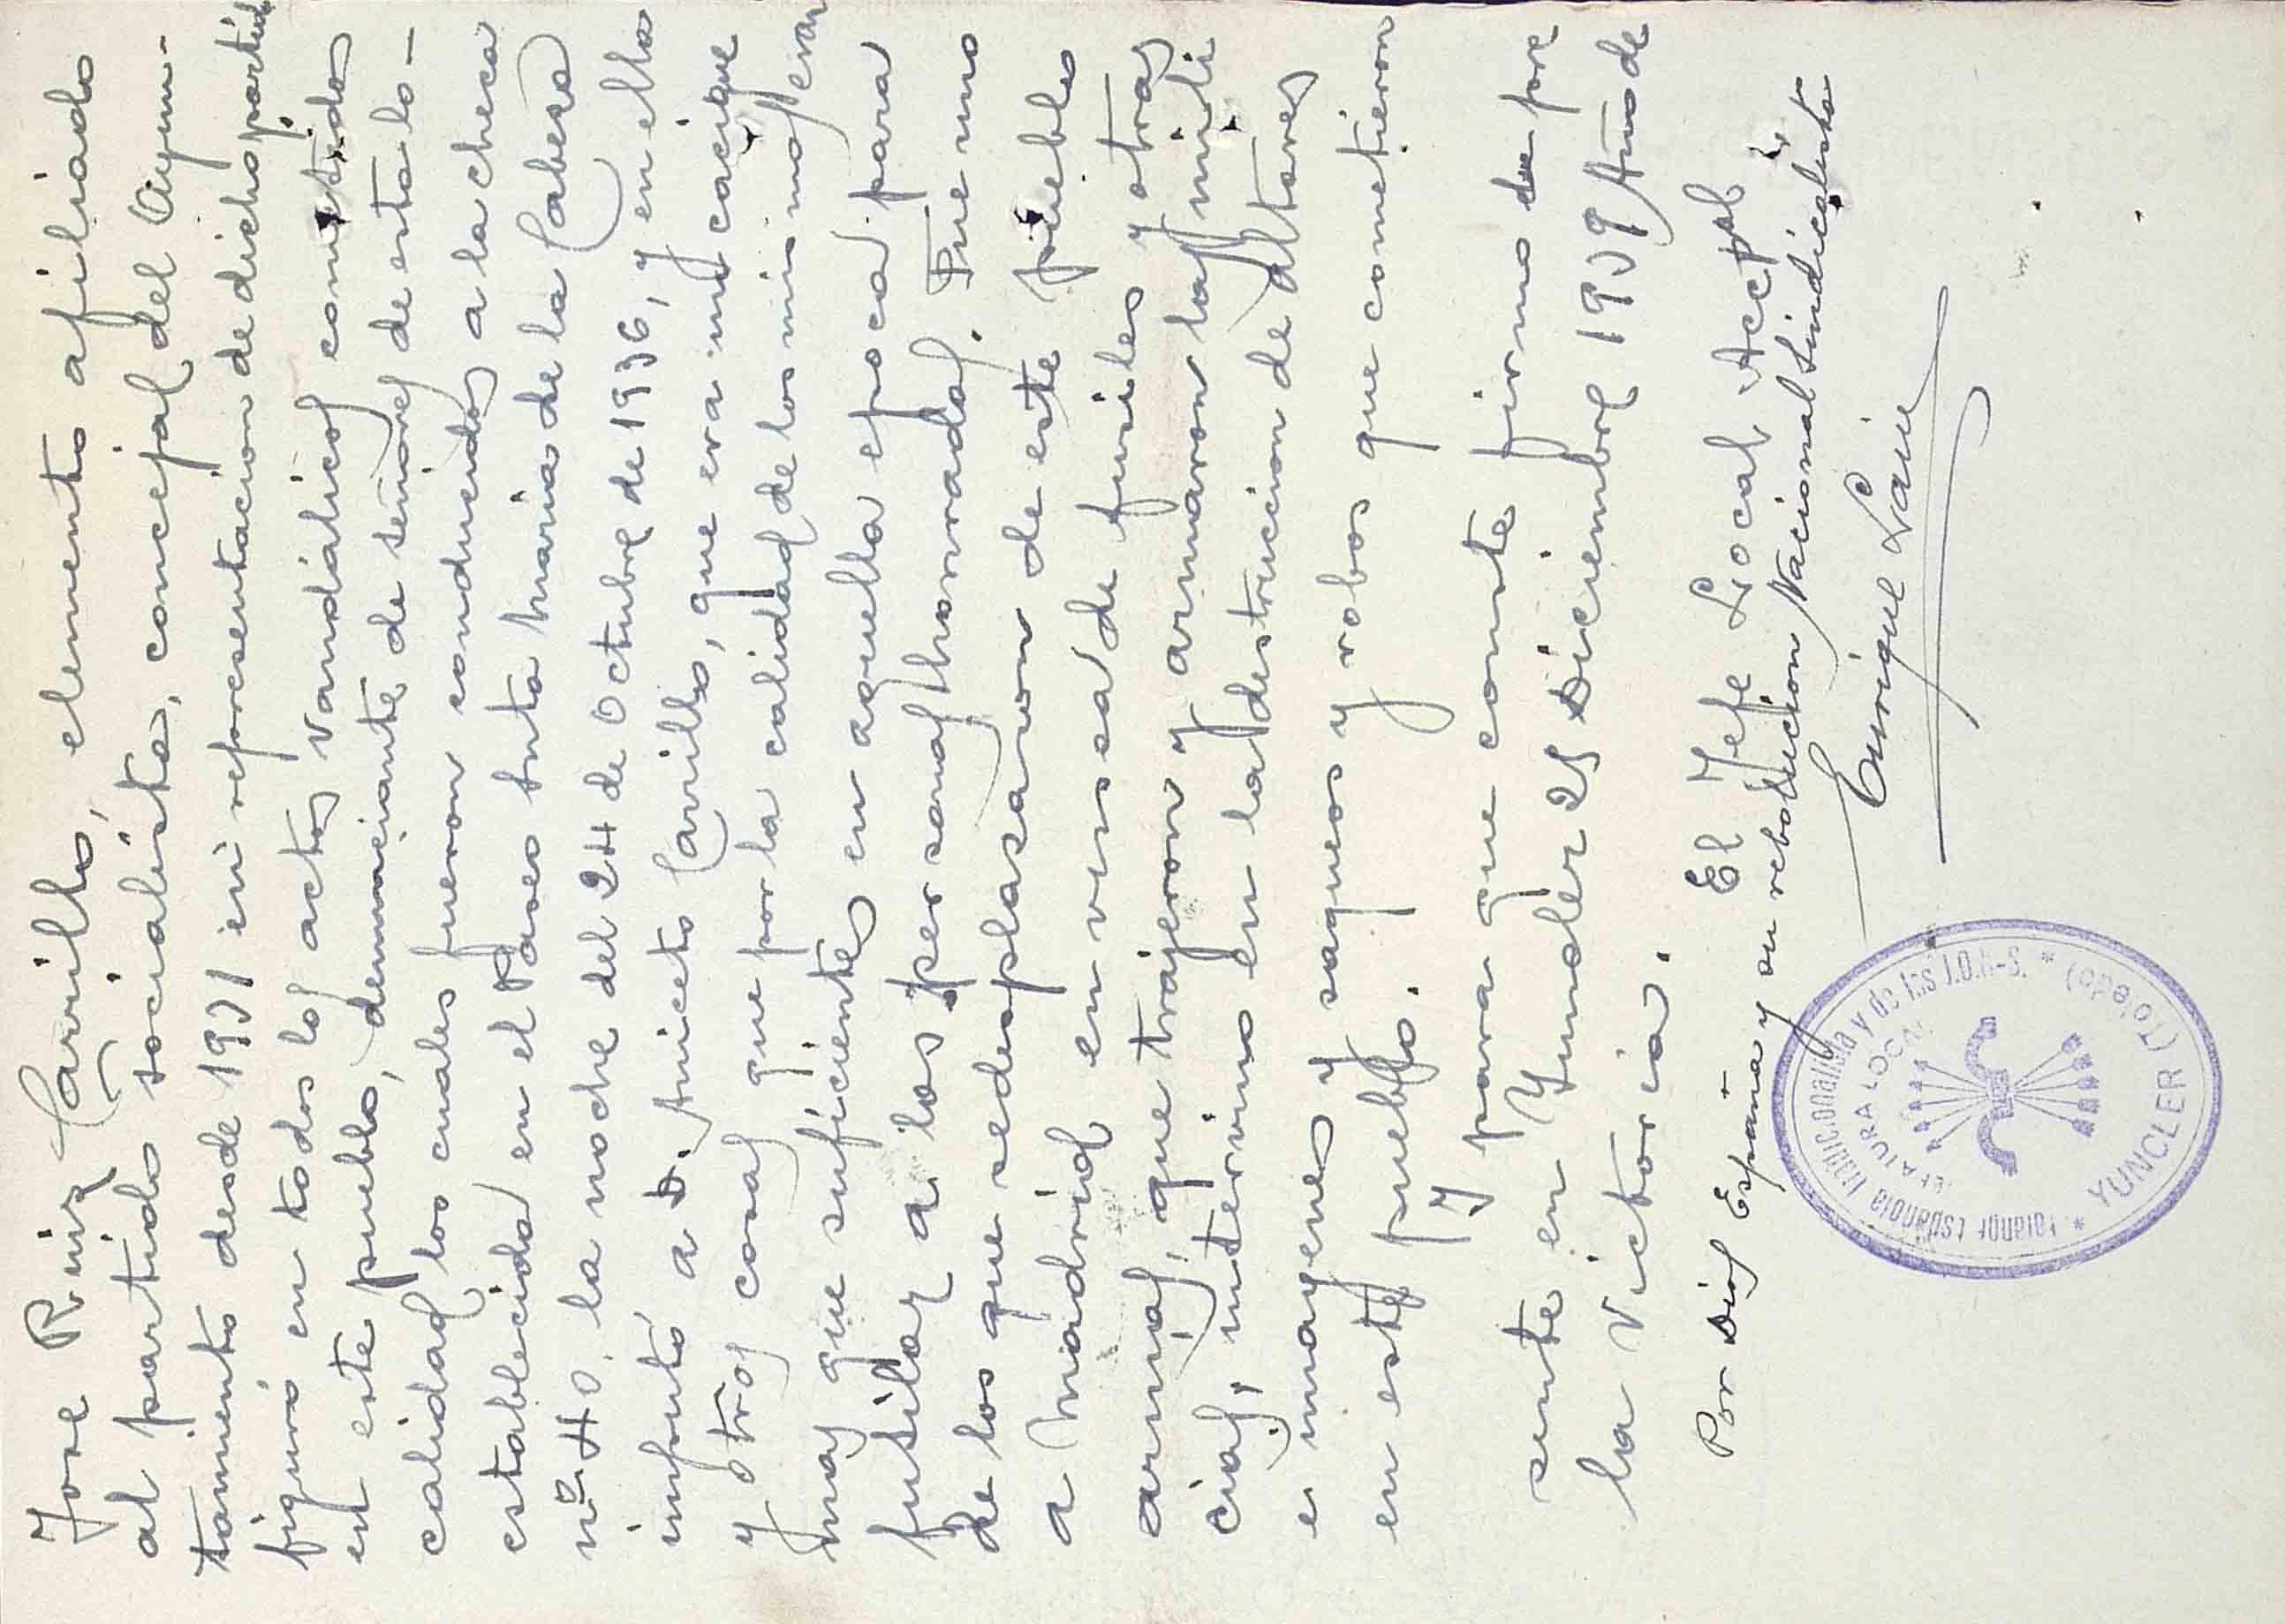 Jose Ruiz Carrillo, elemento afiliado
al partido socialista, concejal del Ayun-
tamiento desde 1931 en representacion de dicho partido
figuró en todos los actos vandálicos cometidos
en este pueblo, denunciante de señores de esta lo-
calidad los cuales fueron conducidos a la checa
establecida en el Paseo Santa Maria de la Cabeza
nº 40, la noche del 24 de Octubre de 1936, y en ella
imputó a D. Aniceto Carrillo, que era un cacique
y otras cosas que por la calidad de los mismos eran
mas que suficientes en aquella epoca para
fusilar a las personas honradas. Fue uno
de los que se desplasaron de este pueblo
a Madrid en busca de fusiles y otras
armas, que trajeron y armaron las mili
cias, intervino en la destrucion de altares
e imagenes y saqueos y robos que cometieron
en este pueblo.
Y para que conste firmo la pre
sente en Yuncler 25 Diciembre 1939 Año de
la Victoria.
El Jefe Local Acctal
Por Dios España y su revolucion Nacional Sindicalista
Enrique
* Falange Española Tradicionalista y de las J.O.N-S. *
JEFATURA LOCAL
YUNCLER (Toledo)